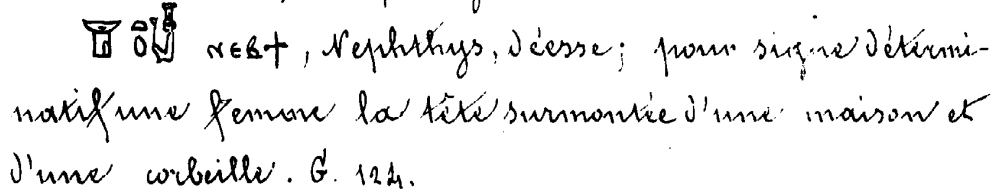 ⲛⲉⲃϯ, Nephthys, Déesse; pour signe détermi-
natif une femme la tête surmontée d'une maison et
d'une corbeille. G. 124.